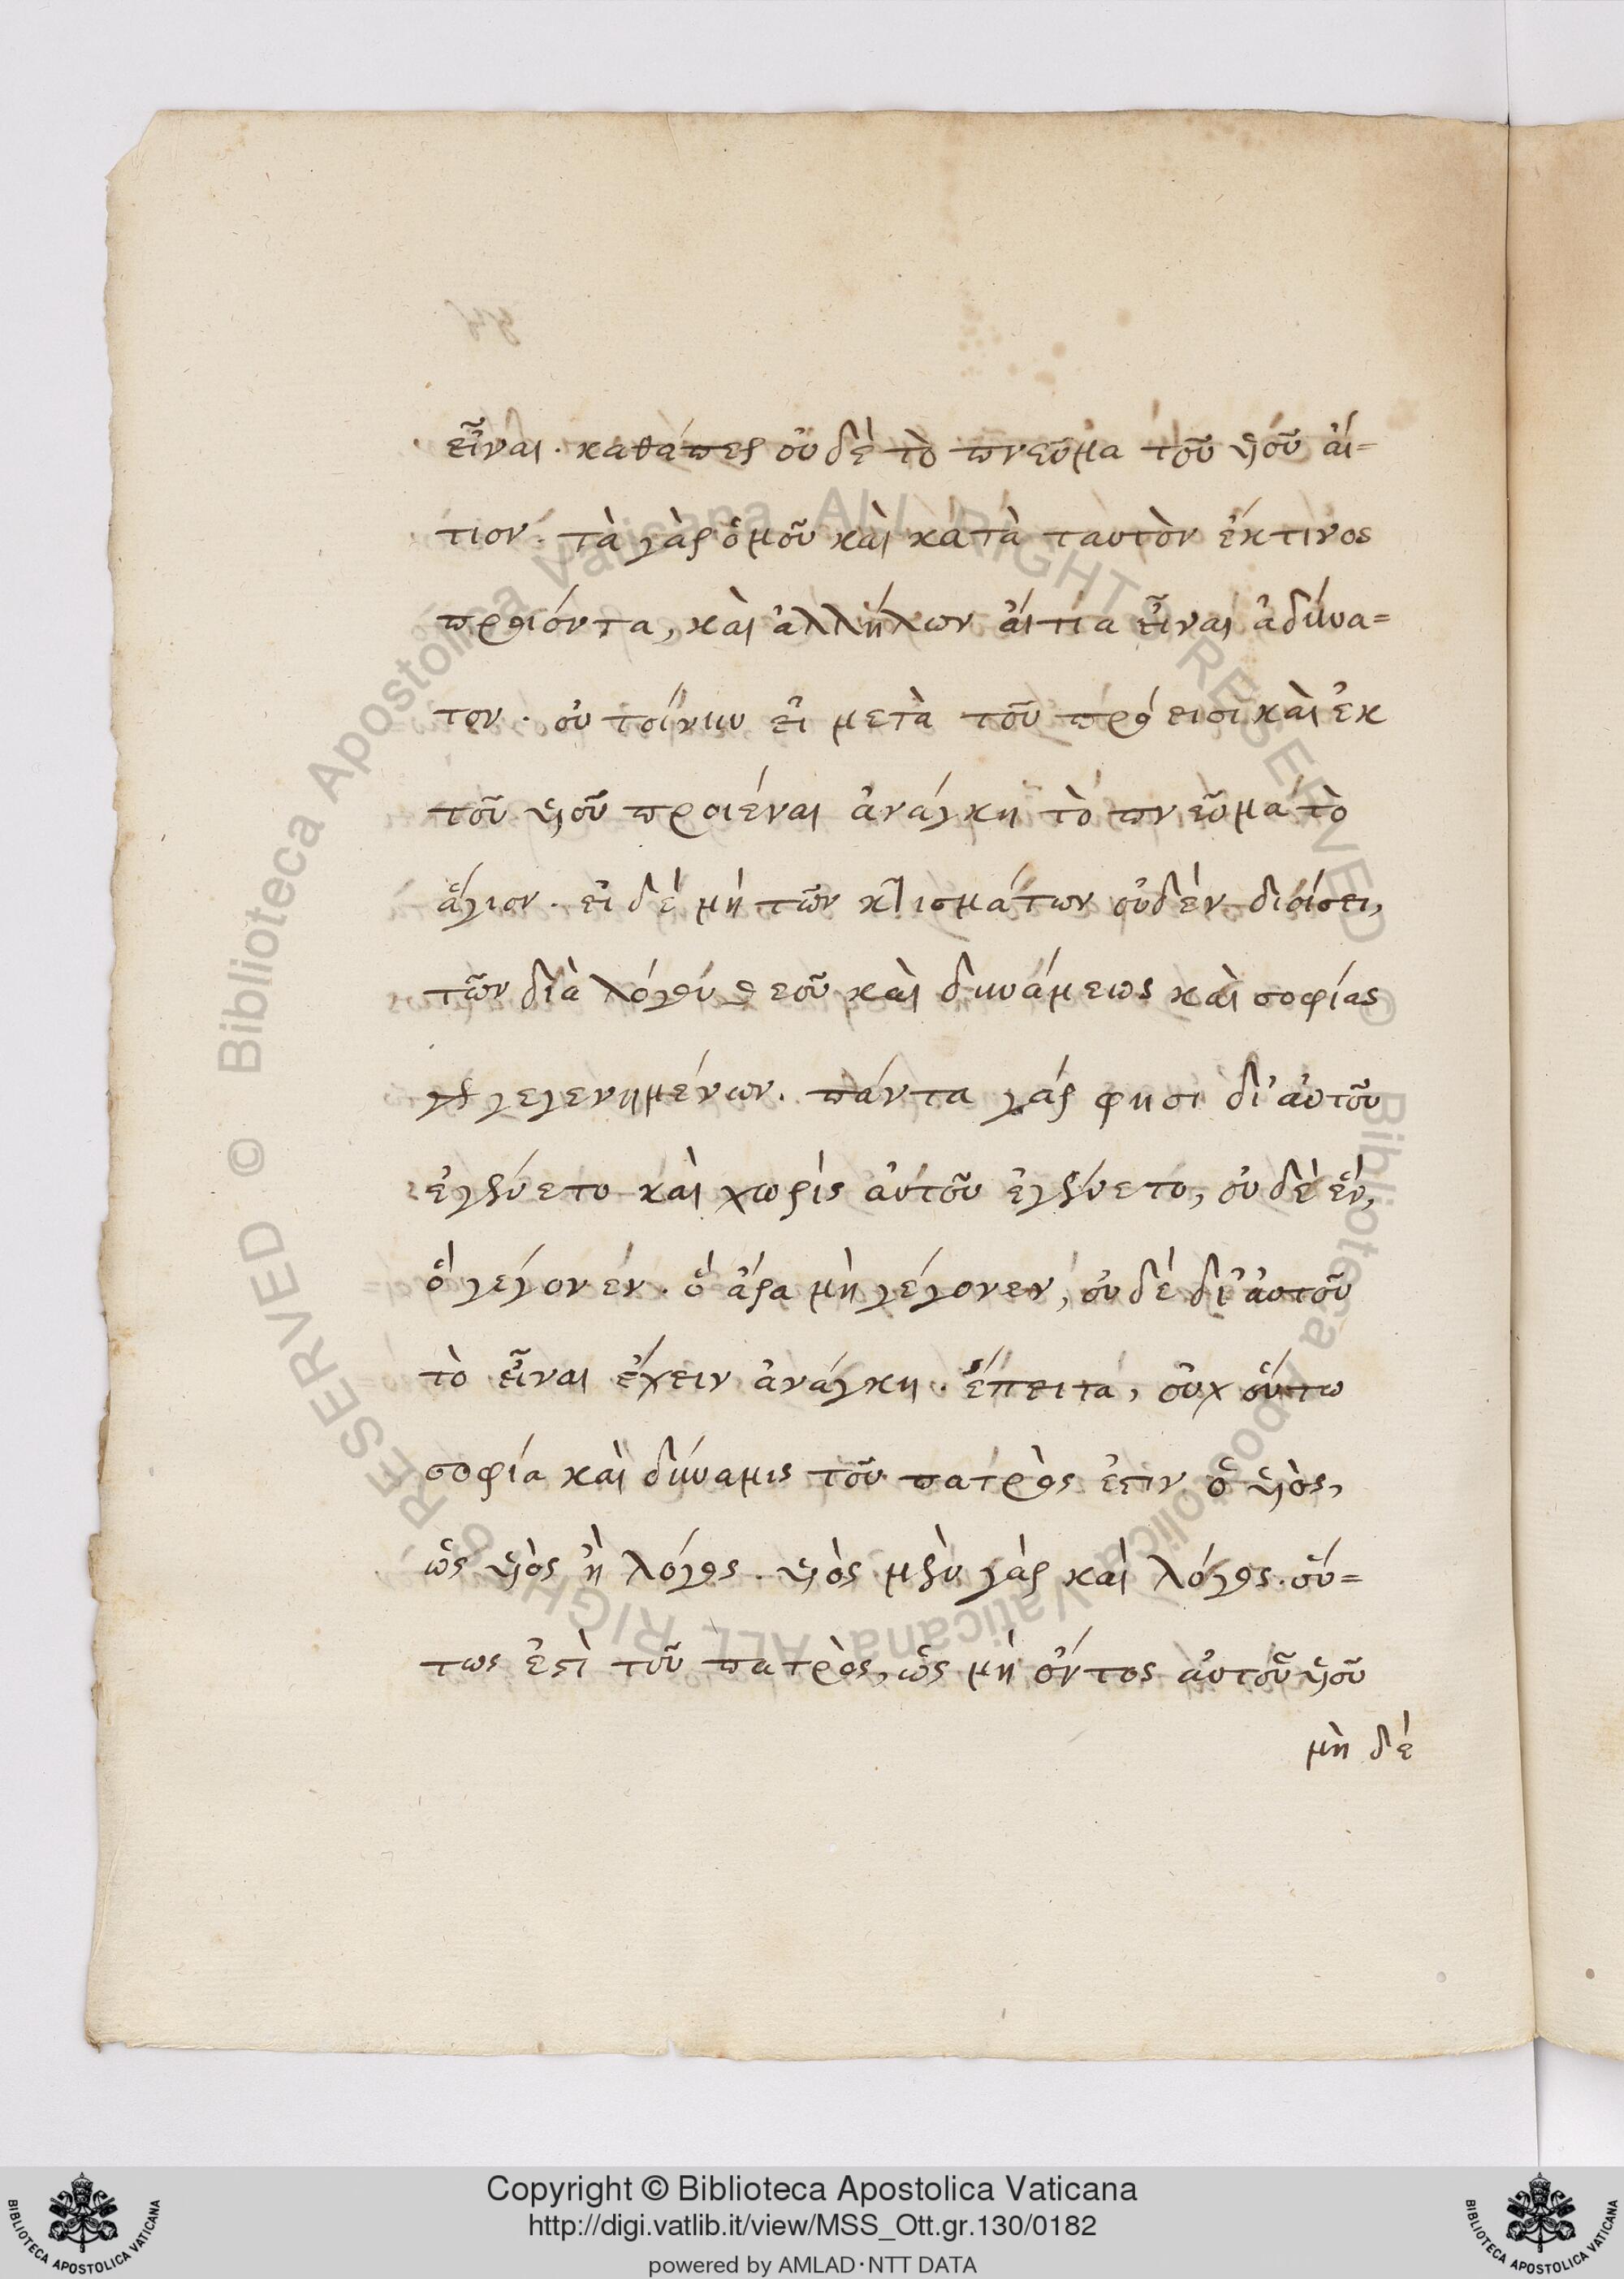 εἶναι. καθάπερ οὐδὲ τὸ πνεῦμα τοῦ υἱοῦ αἴ=
τιον. τὰ γὰρ ὁμοῦ καὶ κατὰ ταυτὸν ἔκτινος
προιόντα, καὶ ἀλλήλων ἄιτια εἶναι ἀδύνα=
τον. οὐ τοίνυν εἰ μετὰ τοῦ πρόεισι καὶ ἐκ
τοῦ υἱοῦ προιέναι ἀνάγκη τὸ πνεῦμα τὸ
ἅγιον. εἰ δὲ μὴ τῶν κτισμάτων οὐδὲν διοίσει,
τῶν διὰ λόγου θεοῦ καὶ δυνάμεως καὶ σοφίας
γεγενημένων. πάντα γάρ φησι δι' αὐτοῦ
ἐγένετο καὶ χωρὶς αὐτοῦ ἐγένετο, οὐδὲ ἕν,
ὃ γέγονεν. ὃ ἄρα μὴ γέγονεν, οὐδὲ δι' αὐτοῦ
τὸ εἶναι ἔχειν ἀνάγκη. ἔπειτα, οὐχ οὕτω
σοφία καὶ δύναμις τοῦ πατρὸς ἐστιν ὁ υἱὸς,
ὡς υἱὸς ἢ λόγος. υἱὸς μὲν γὰρ καὶ λόγος. οὕ=
τως ἐστὶ τοῦ πατρὸς, ὡς μὴ ὄντος αὐτοῦ υἱοῦ
μὴ δέ
Biblioteca Apostolica Vaticana ALL RIGHTS RESERVED ©
Biblioteca Apostolica Vaticana ALL RIGHTS RESERVED ©
BIBLIOTECA APOSTOLICA VATICANA
Copyright © Biblioteca Apostolica Vaticana
http://digi.vatlib.it/view/MSS_Ott.gr.130/0182
powered by AMLAD·NTT DATA
BIBLIOTECA APOSTOLICA VATICANA